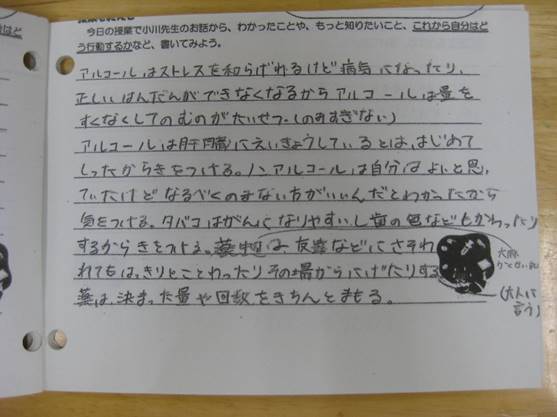 今日の授業で小川先生のお話から、わかったことや、もっと知りたいこと、これから自分はど
う行動するかなど、書いてみよう。
アルコールはストレスを和らげれるけど病気になったり、
正しいはんだんができなくなるからアルコールは量を
すくなくしてのむのがたいせつ。(のみすぎない)
アルコールは肝臓にえいきょうしているとは、はじめて
しったからきをつける。ノンアルコールは自分はよいと思っ
ていたけどなるべくのまない方がいいんだとわかったから
気をつける。タバコはがんになりやすいし歯の色などもかわったり
するからきをつける。薬物は、友達などにさそわ
れてもはっきりとことわったりその場からにげたりする
薬は、決まった量や回数をきちんとまもる。
大麻
(大人に
言う)